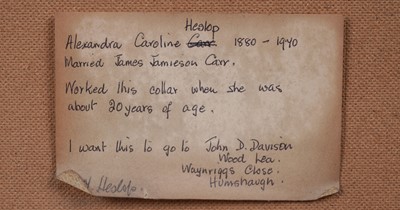 Heslop
Alexandra Caroline Carr 1880 - 1940
Married James Jamieson Carr.
Worked this collar when she was
about 20 years of age.
I want this to go to John D. Davison
Wood Lea.
Waynriggs Close.
Humshaugh.
Heslop.